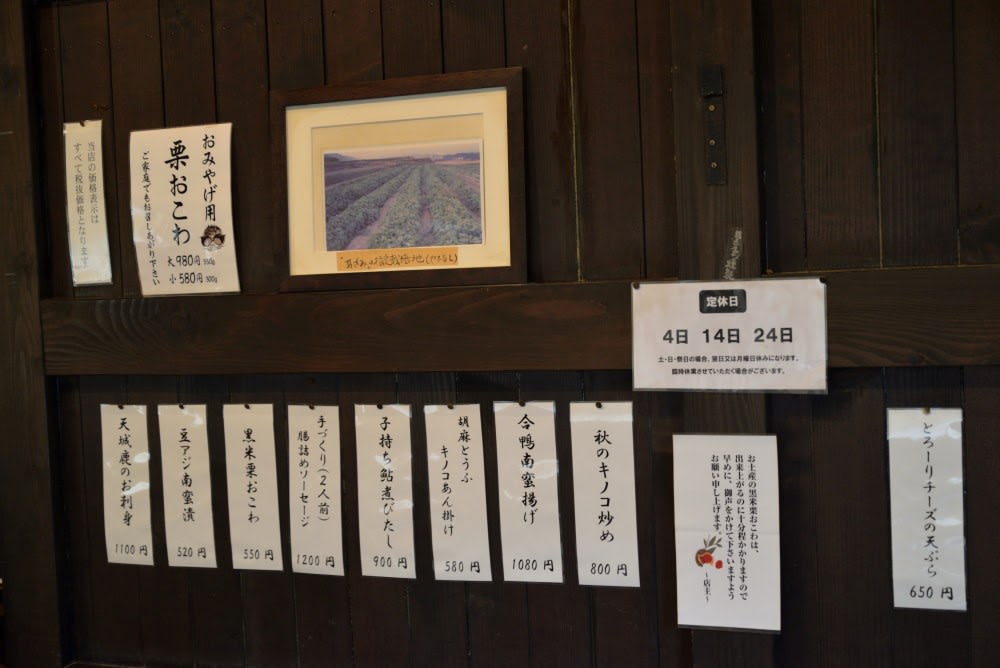 当店の価格表示は
すべて税抜価格となります
おみやげ用
栗おこわ
ご家庭でもお召しあがり下さい
大980円 550g
小580円 300g
定休日
4日 14日 24日
土・日・祭日の場合、翌日又は月曜日休みになります。
臨時休業させていただく場合がございます。
天城鹿のお刺身
1100円
豆アジ南蛮漬
520円
黒米栗おこわ
550円
手づくり(2人前)
腸詰めソーセージ
1200円
子持ち鮎煮びたし
900円
胡麻どうふ
キノコあん掛け
580円
合鴨南蛮揚げ
1080円
秋のキノコ炒め
800円
お土産の黒米栗おこわは、
出来上がるのに十分程かかりますので
早めに、御声をかけて下さいますよう
お願い申し上げます。
~店主~
とろーりチーズの天ぷら
650円